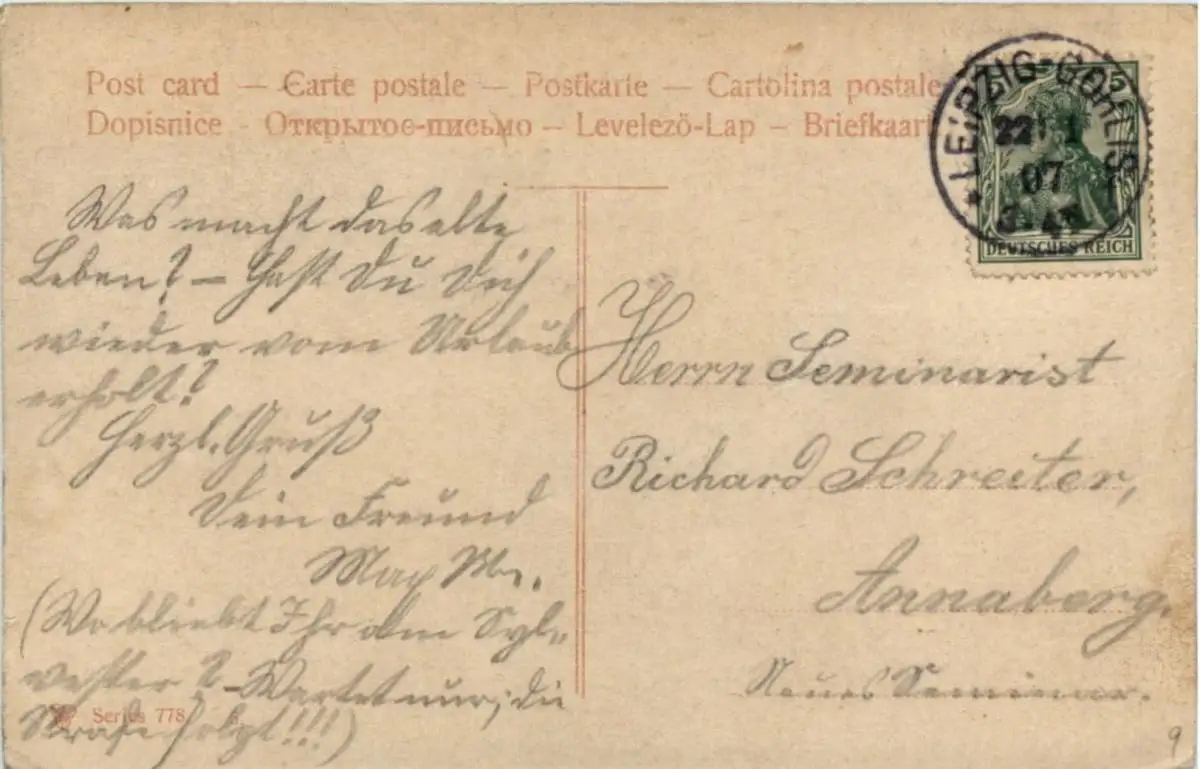 Post card — Carte postale — Postkarte — Cartolina postale
Dopisnice - Открытое-письмо — Levelező-Lap — Briefkaart
LEIPZIG-GOHLIS
22 1
07
5
DEUTSCHES REICH
Was macht das alte
Leben? – Hast Du Dich
wieder vom Urlaub
erholt?
Herzl. Gruß
Dein Freund
Max
(Wo bliebt Ihr denn Syl-
vester? – Wartet nur, die
Strafe folgt!!!)
Series 778
Herrn Seminarist
Richard Schreiter,
Annaberg.
Neues Seminar.
9